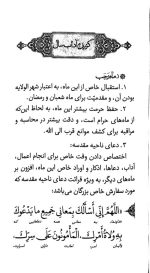 گزیدهٔ آداب سال
ماه رجب
۱. استقبال خاص از این ماه، به اعتبار شهر الولایه
بودن آن، و مقدمیّت برای ماه شعبان و رمضان.
۲. حفظ حرمت بیشتر این ماه، به اعتبار این‌که
از ماه‌های حرام است، و دقت بیشتر در محاسبه و
مراقبه برای کشف موانع قرب الی الله.
۳. دعای ناحیه مقدسه:
اختصاص دادن وقت خاص برای انجام اعمال،
آداب، دعاها، اذکار و اوراد خاص این ماه، افزون بر
توجه بیشتر به قرائت دعای ناحیه مقدسه که
مورد سفارش خاص بزرگان می‌باشد:
اَللّهُمَّ اِنّی اَسْأَلُکَ بِمَعانی جَمیعِ ما یَدْعُوکَ
بِهِ وُلاةُ اَمْرِکَ الْمَأْمُونُونَ عَلی سِرِّکَ